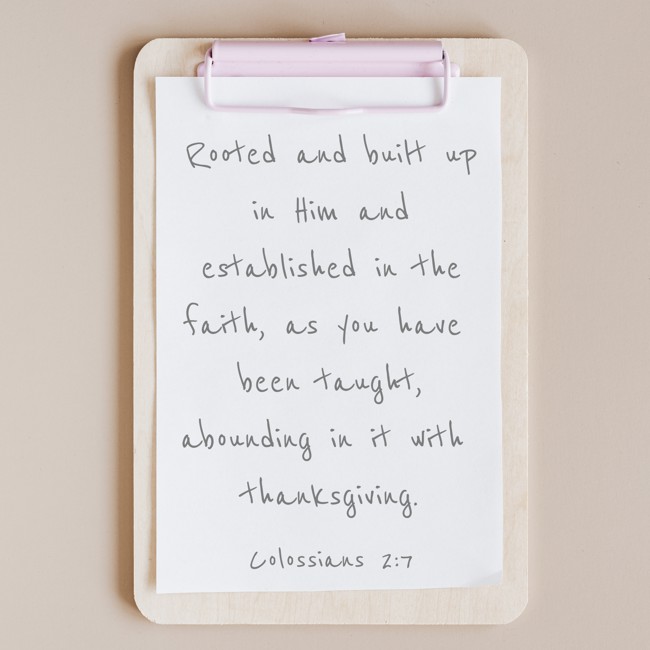 Rooted and built up
in Him and
established in the
faith, as you have
been taught,
abounding in it with
thanksgiving.
Colossians 2:7